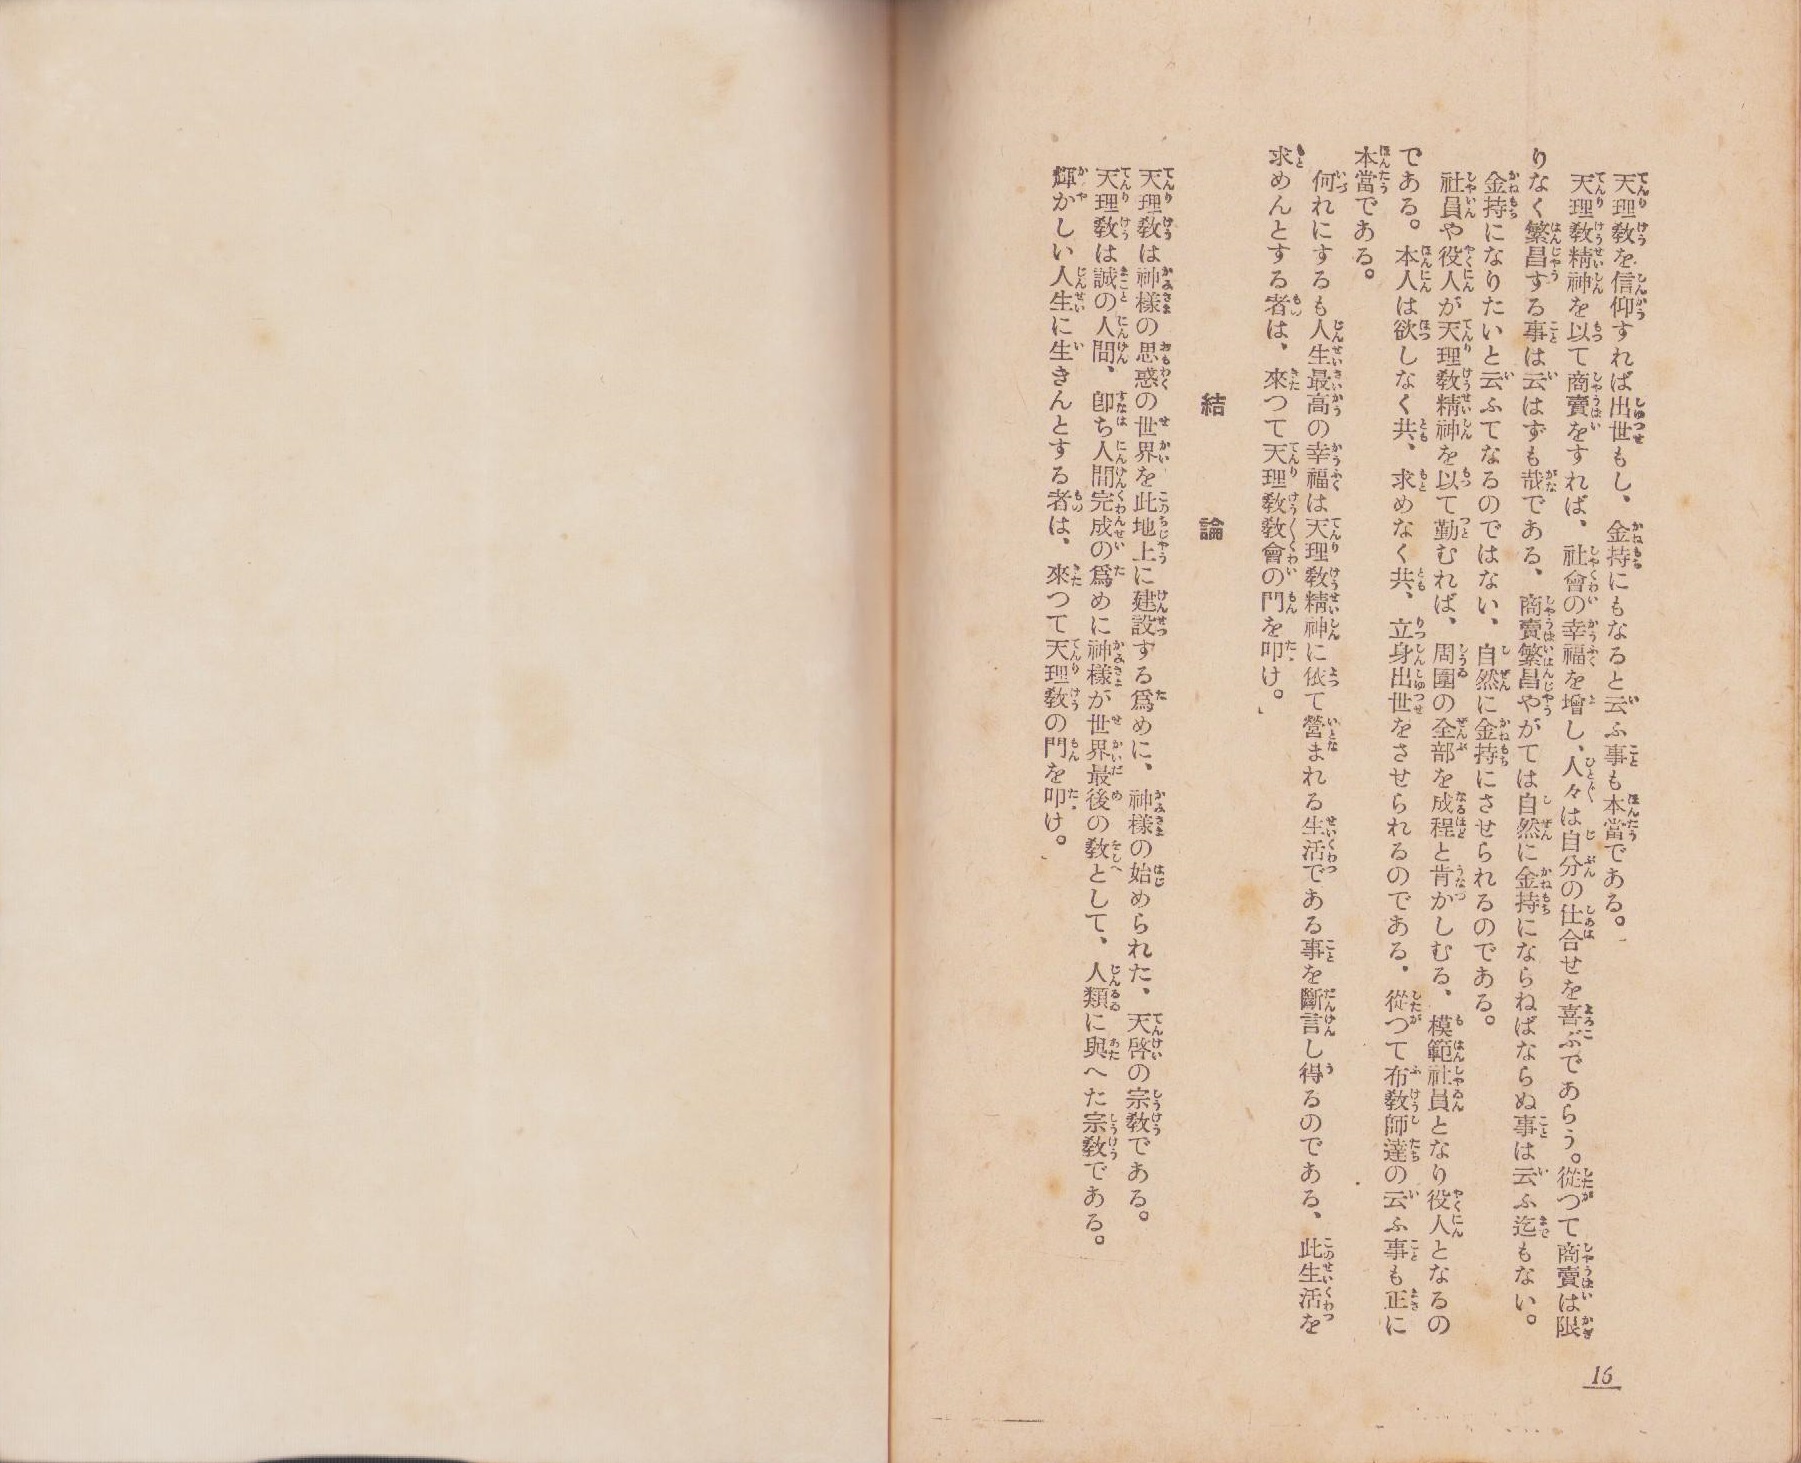 天理敎を信仰すれば出世もし、金持にもなると云ふ事も本當である。
天理敎精神を以て商賣をすれば、社會の幸福を增し、人々は自分の仕合せを喜ぶであらう。從つて商賣は限
りなく繁昌する事は云はずも哉である、商賣繁昌やがては自然に金持にならねばならぬ事は云ふ迄もない。
金持になりたいと云ふてなるのではない、自然に金持にさせられるのである。
社員や役人が天理敎精神を以て勤むれば、周圍の全部を成程と肯かしむる、模範社員となり役人となるの
である。本人は欲しなく共、求めなく共、立身出世をさせられるのである．從つて布敎師達の云ふ事も正に
本當である。
何れにするも人生最高の幸福は天理敎精神に依て營まれる生活である事を斷言し得るのである、此生活を
求めんとする者は、來つて天理敎敎會の門を叩け。」
結論
天理敎は神樣の思惑の世界を此地上に建設する爲めに、神樣の始められた、天啓の宗敎である。
天理敎は誠の人間、卽ち人間完成の爲めに神樣が世界最後の敎として、人類に與へた宗敎である。
輝かしい人生に生きんとする者は、來つて天理敎の門を叩け。
16